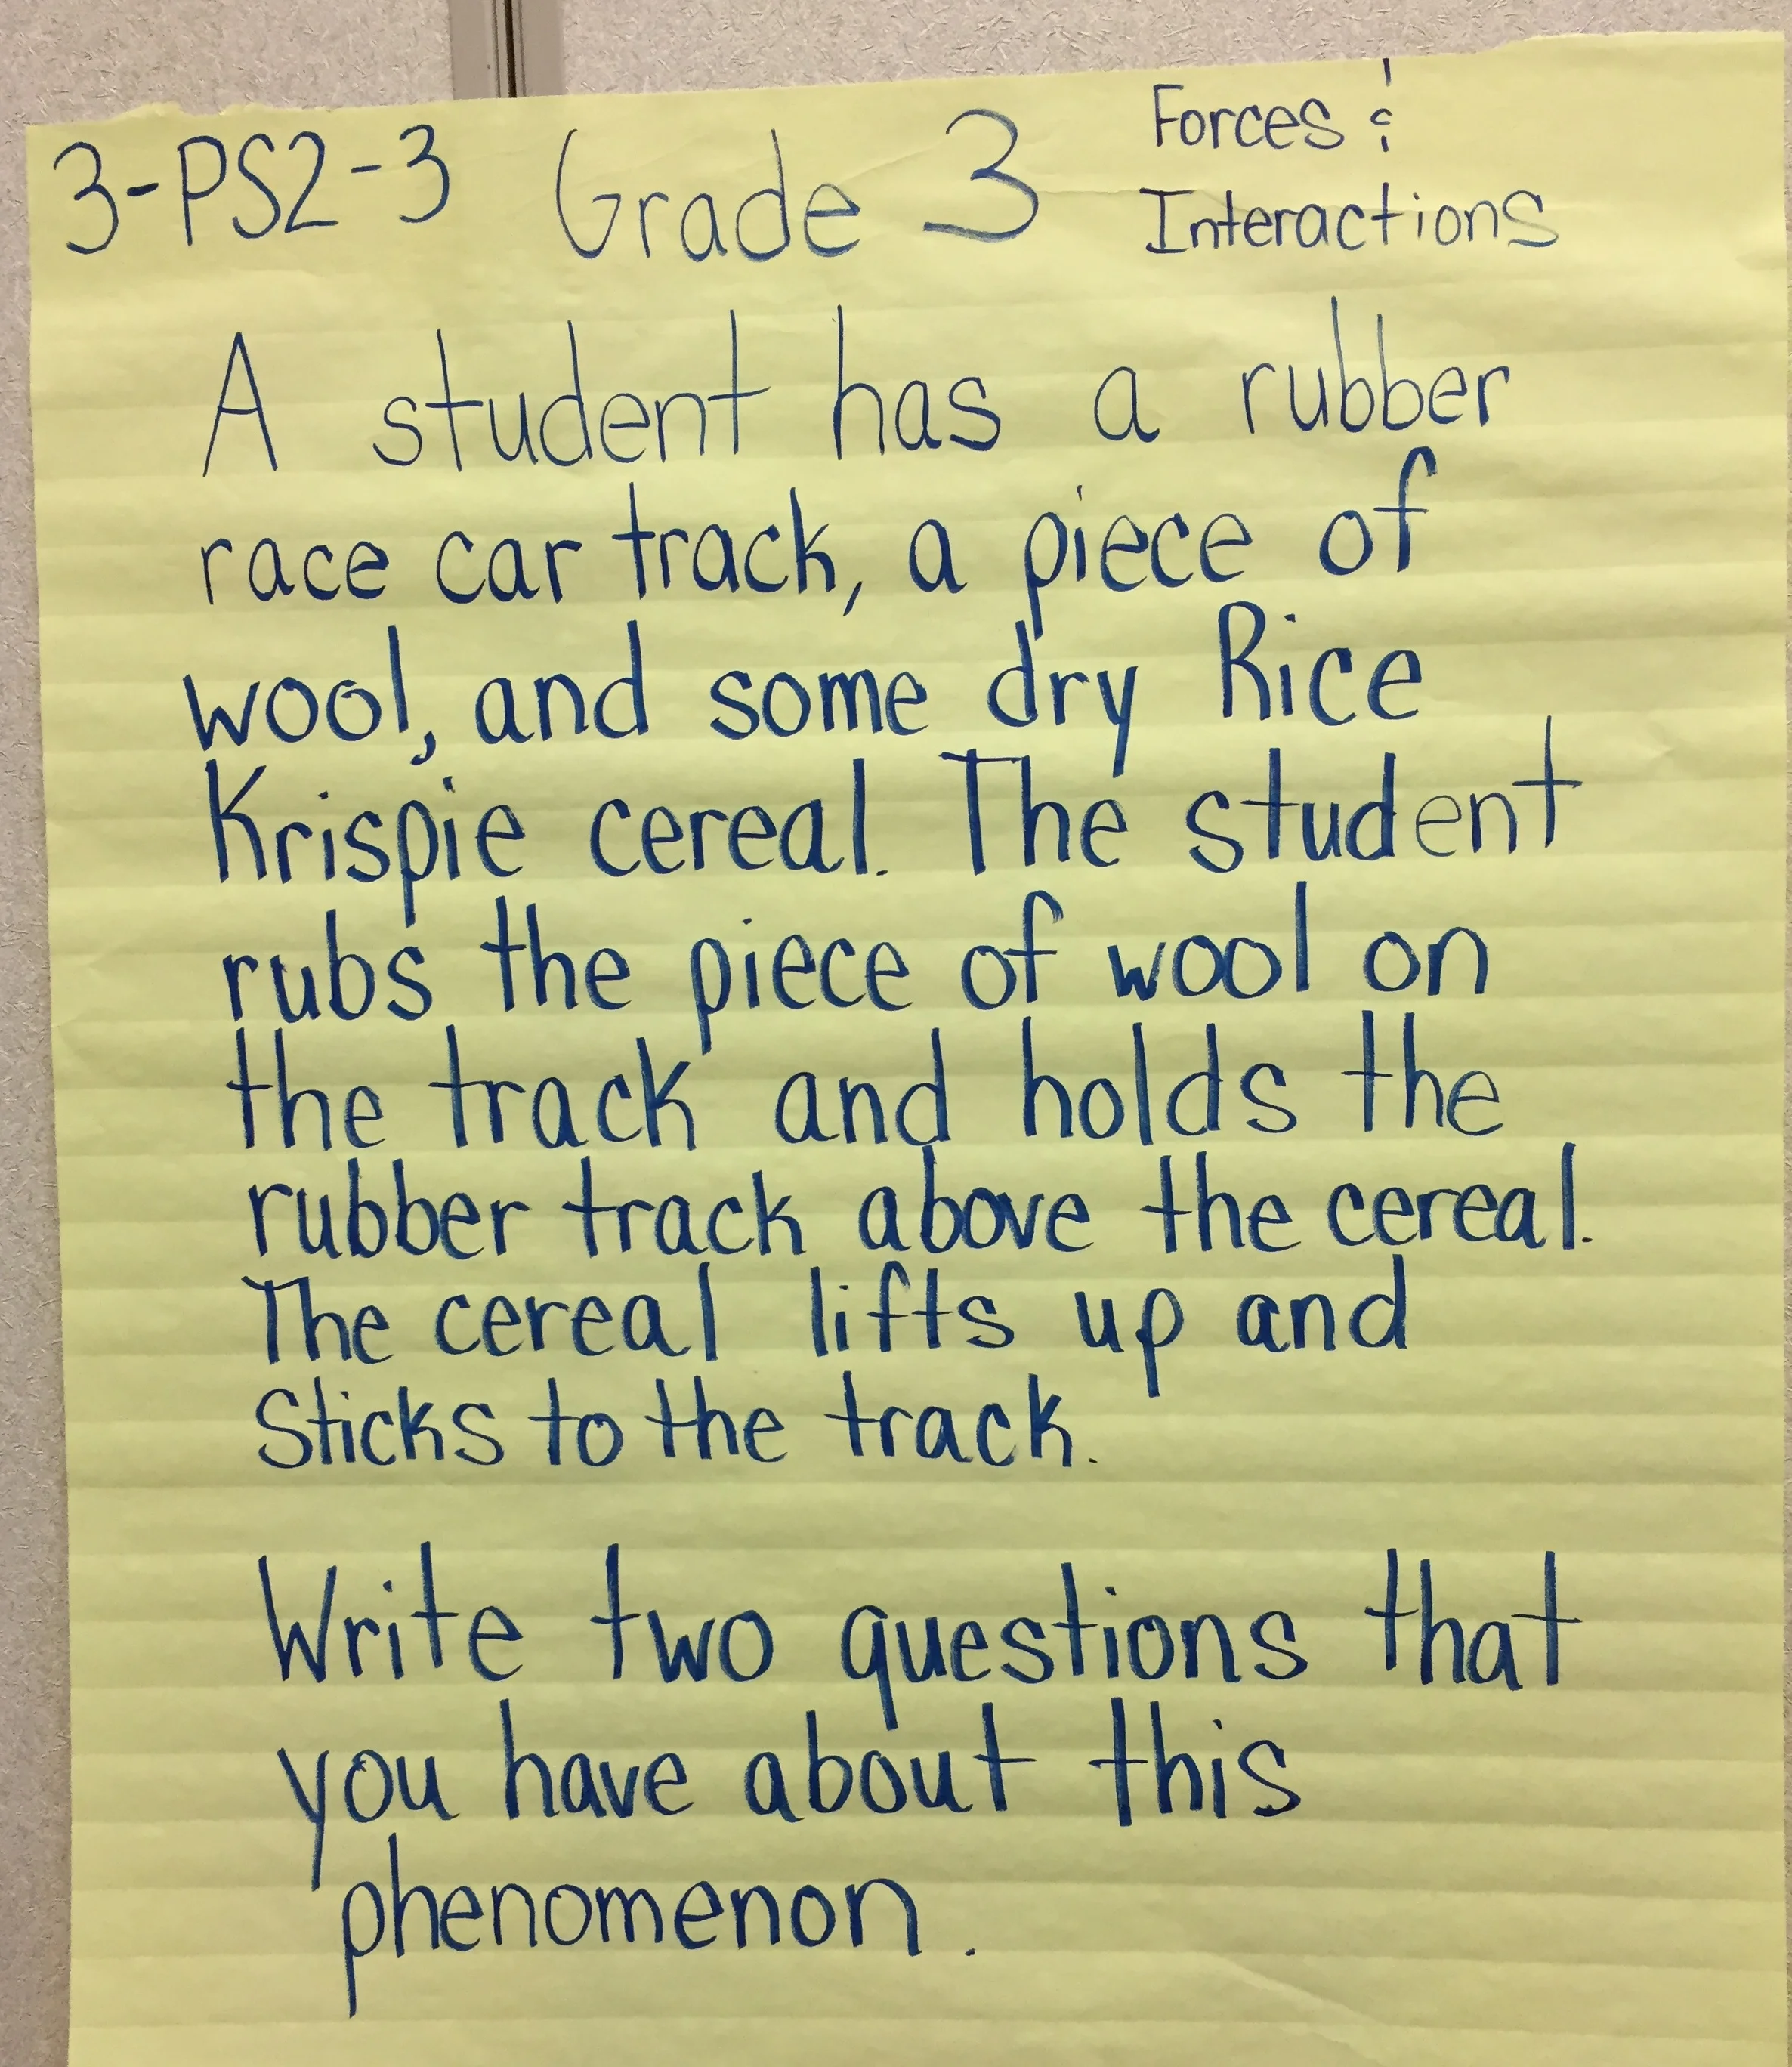 3-PS2-3 Grade 3 Forces &
Interactions
A student has a rubber
race car track, a piece of
wool, and some dry Rice
Krispie cereal. The student
rubs the piece of wool on
the track and holds the
rubber track above the cereal.
The cereal lifts up and
Sticks to the track.
Write two questions that
you have about this
phenomenon.